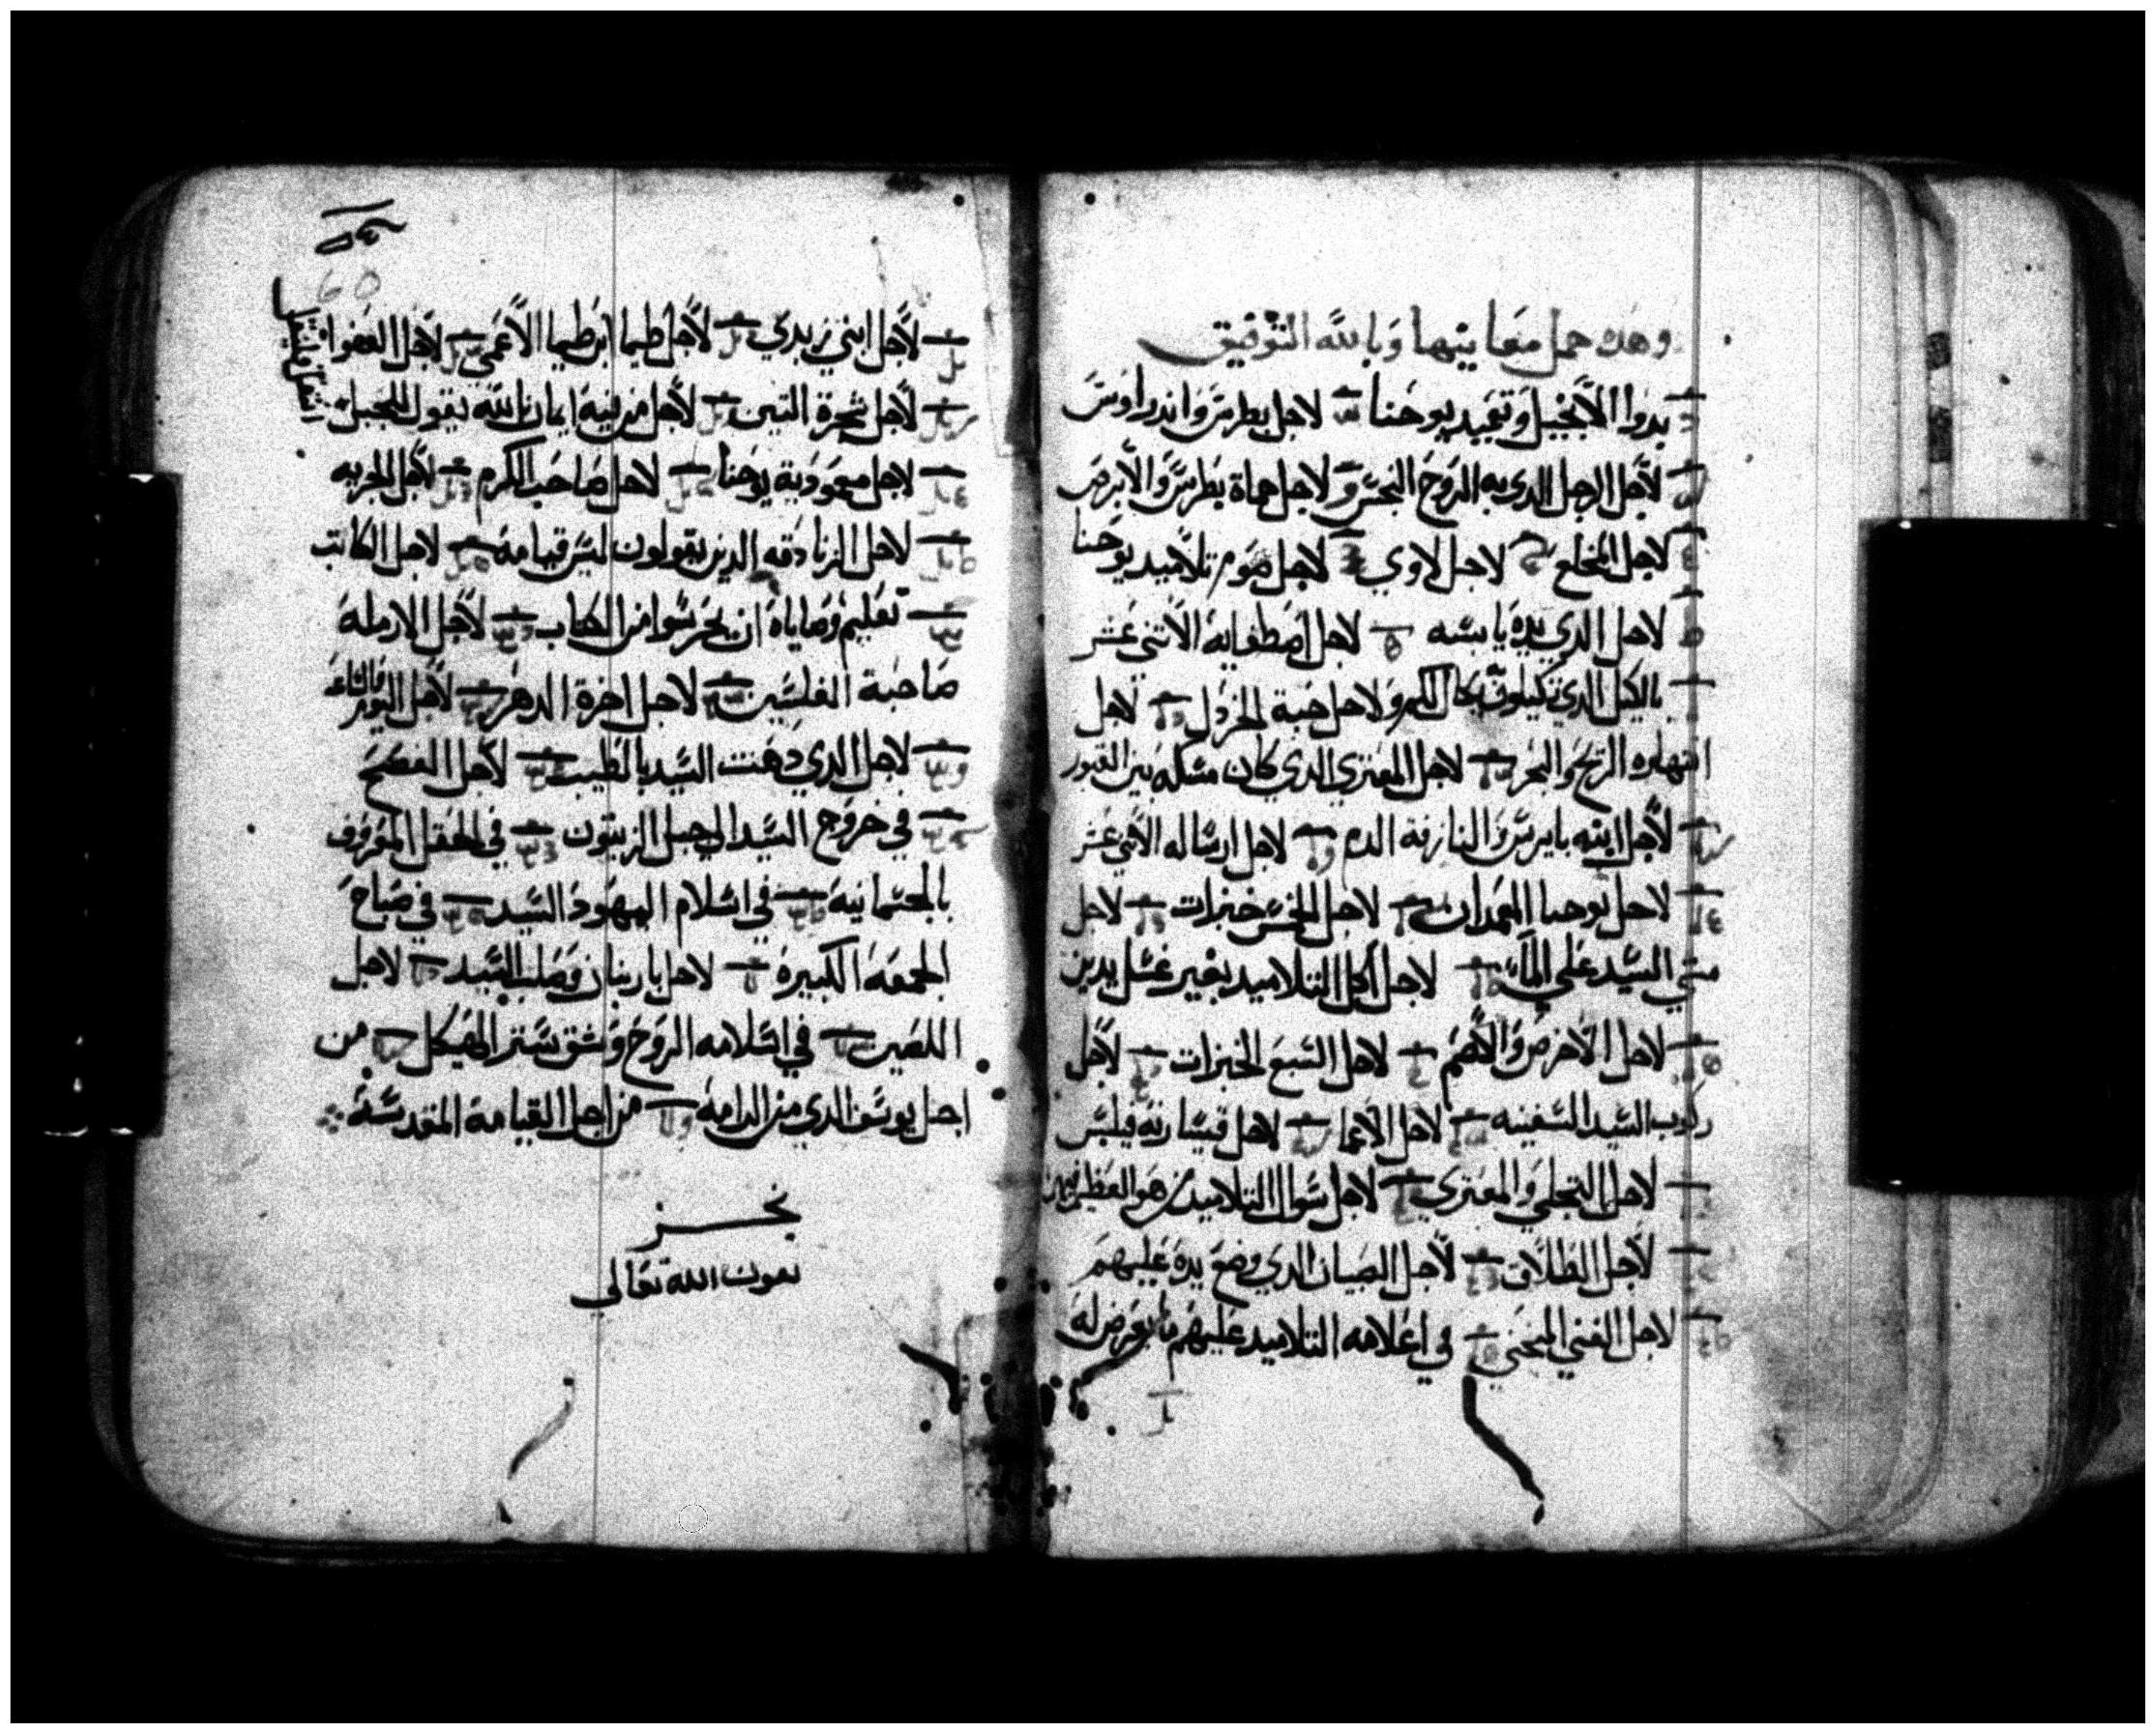 وهده جمل معانيها وبالله التوفيق
بدوا الانجيل وتعميد يوحنا لاجل بطرس واندراوس
لاجل الرجل الدي به الروح النجس و لاجل حماة بطرس والابرص
لاجل المخلع لاجل لاوي لاجل صوم تلاميد يوحنا
لاجل الدي يده يابسه لاجل اصطفايه الاتني عشر
بالكيل الدي تكيلون يكال لكم ولاجل حبة الخردل لاجل
انتهاره الريح والبحر لاجل المعتري الدي كان مسكنه بين القبور
لاجل ابنه يايرس والنازفة الدم لاجل ارساله الاتني عشر
لاجل يوحنا المعمدان لاجل الخمس خبزات لاجل
مشي السيد علي الماء لاجل اكل التلاميد بغير غسل يدين
لاجل الاخرس والاصم لاجل السبع الخبزات لاجل
ركوب السيد السفينه لاجل الاعما لاجل قيسارية فيلبس
لاجل التجلي والمعتري لاجل سوال التلاميد من هو العظيم فيهم
لاجل الطلاق لاجل الصبيان الدي وضع يده عليهم
لاجل الغني المحني في اعلامه التلاميد عليهم ما يعرض له
60
لاجل ابني زبدي لاجل طيما ابن طيما الاعمي لاجل العفوا
لاجل شجرة التين لاجل من فيه ايمان بالله يقول للجبل
انتقل فينتقل
لاجل معمودية يوحنا لاجل صاحب الكرم لاجل الجزيه
لاجل الزنادقه الدين يقولون ليس قيامه لاجل الكاتب
تعليم وصاياه ان يحترسوا من الكتاب لاجل الارملة
صاحبة الفلسين لاجل اخرة الدهر لاجل اليوم والساعة
لاجل الدي دهنت السيد بالطيب لاجل الفصح
في خروج السيد الي جبل الزيتون في الحقل المعروف
بالجسمانية في اسلام اليهود السيد في صباح
الجمعه الكبيرة لاجل باربنان وصلب السيد لاجل
اللصين في اسلامه الروح وشق ستر الهيكل من
اجل يوسف الدي من الرامة من اجل القيامة المقدسة
نجز
بعون الله تعالي